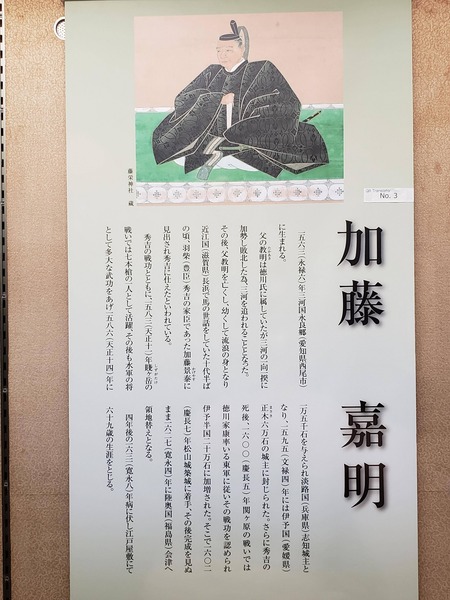 加藤 嘉明
藤栄神社 蔵
No. 3
一五六三(永禄六)年三河国永良郷(愛知県西尾市)
に生まれる。
父の教明は徳川氏に属していたが三河の一向一揆に
加勢し敗北した為、三河を追われることとなった。
その後、父教明を亡くし、幼くして流浪の身となり
近江国(滋賀県)長浜で馬の世話をしていた十代半ば
の頃、羽柴(豊臣)秀吉の家臣であった加藤景泰に
見出され秀吉に仕えたといわれている。
秀吉の戦功とともに、一五八三(天正十一)年賤ヶ岳の
戦いでは七本槍の一人として活躍、その後も水軍の将
として多大な武功をあげ一五八六(天正十四)年に
一万五千石を与えられ淡路国(兵庫県)志知城主と
なり、一五九五(文禄四)年には伊予国(愛媛県)
正木六万石の城主に封じられた。さらに秀吉の
死後、一六〇〇(慶長五)年関ヶ原の戦いでは
徳川家康率いる東軍に従いその戦功を認められ
伊予半国二十万石に加増された。そこで一六〇二
(慶長七)年松山城築城に着手、その後完成を見ぬ
まま一六二七(寛永四)年に陸奥国(福島県)会津へ
領地替えとなる。
四年後の一六三一(寛永八)年病に伏し江戸屋敷にて
六十九歳の生涯をとじる。